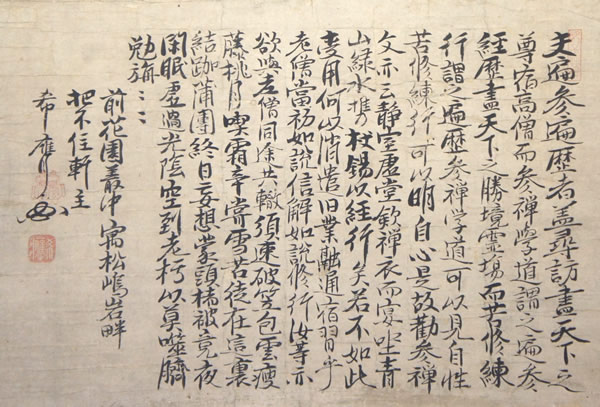 夫遍参遍歴者盖尋訪盡天下之
尊宿高僧而参禅學道謂之遍参
経歴盡天下之勝境霊場而苦修練
行謂之遍歴参禅学道可以見自性
苦修練行可以明自心是故勸参禅
文亦云静室虚堂歛禅衣而宴坐青
山緑水携杖錫以経行矣若不如此
受用何以消遣旧業融通宿習乎
老僧當初如説信解如説修行汝等亦
欲與老僧同途共轍須速破笠包雲瘦
藤挑月喫霜辛嘗雪苦徒在這裏
結跏蒲團終日妄想蒙頭楮被竟夜
閑眠虚過光陰空到老朽以莫噬臍
勉旃〻〻
前花園叢中寓松嶋岩畔
把不住軒主
希膺